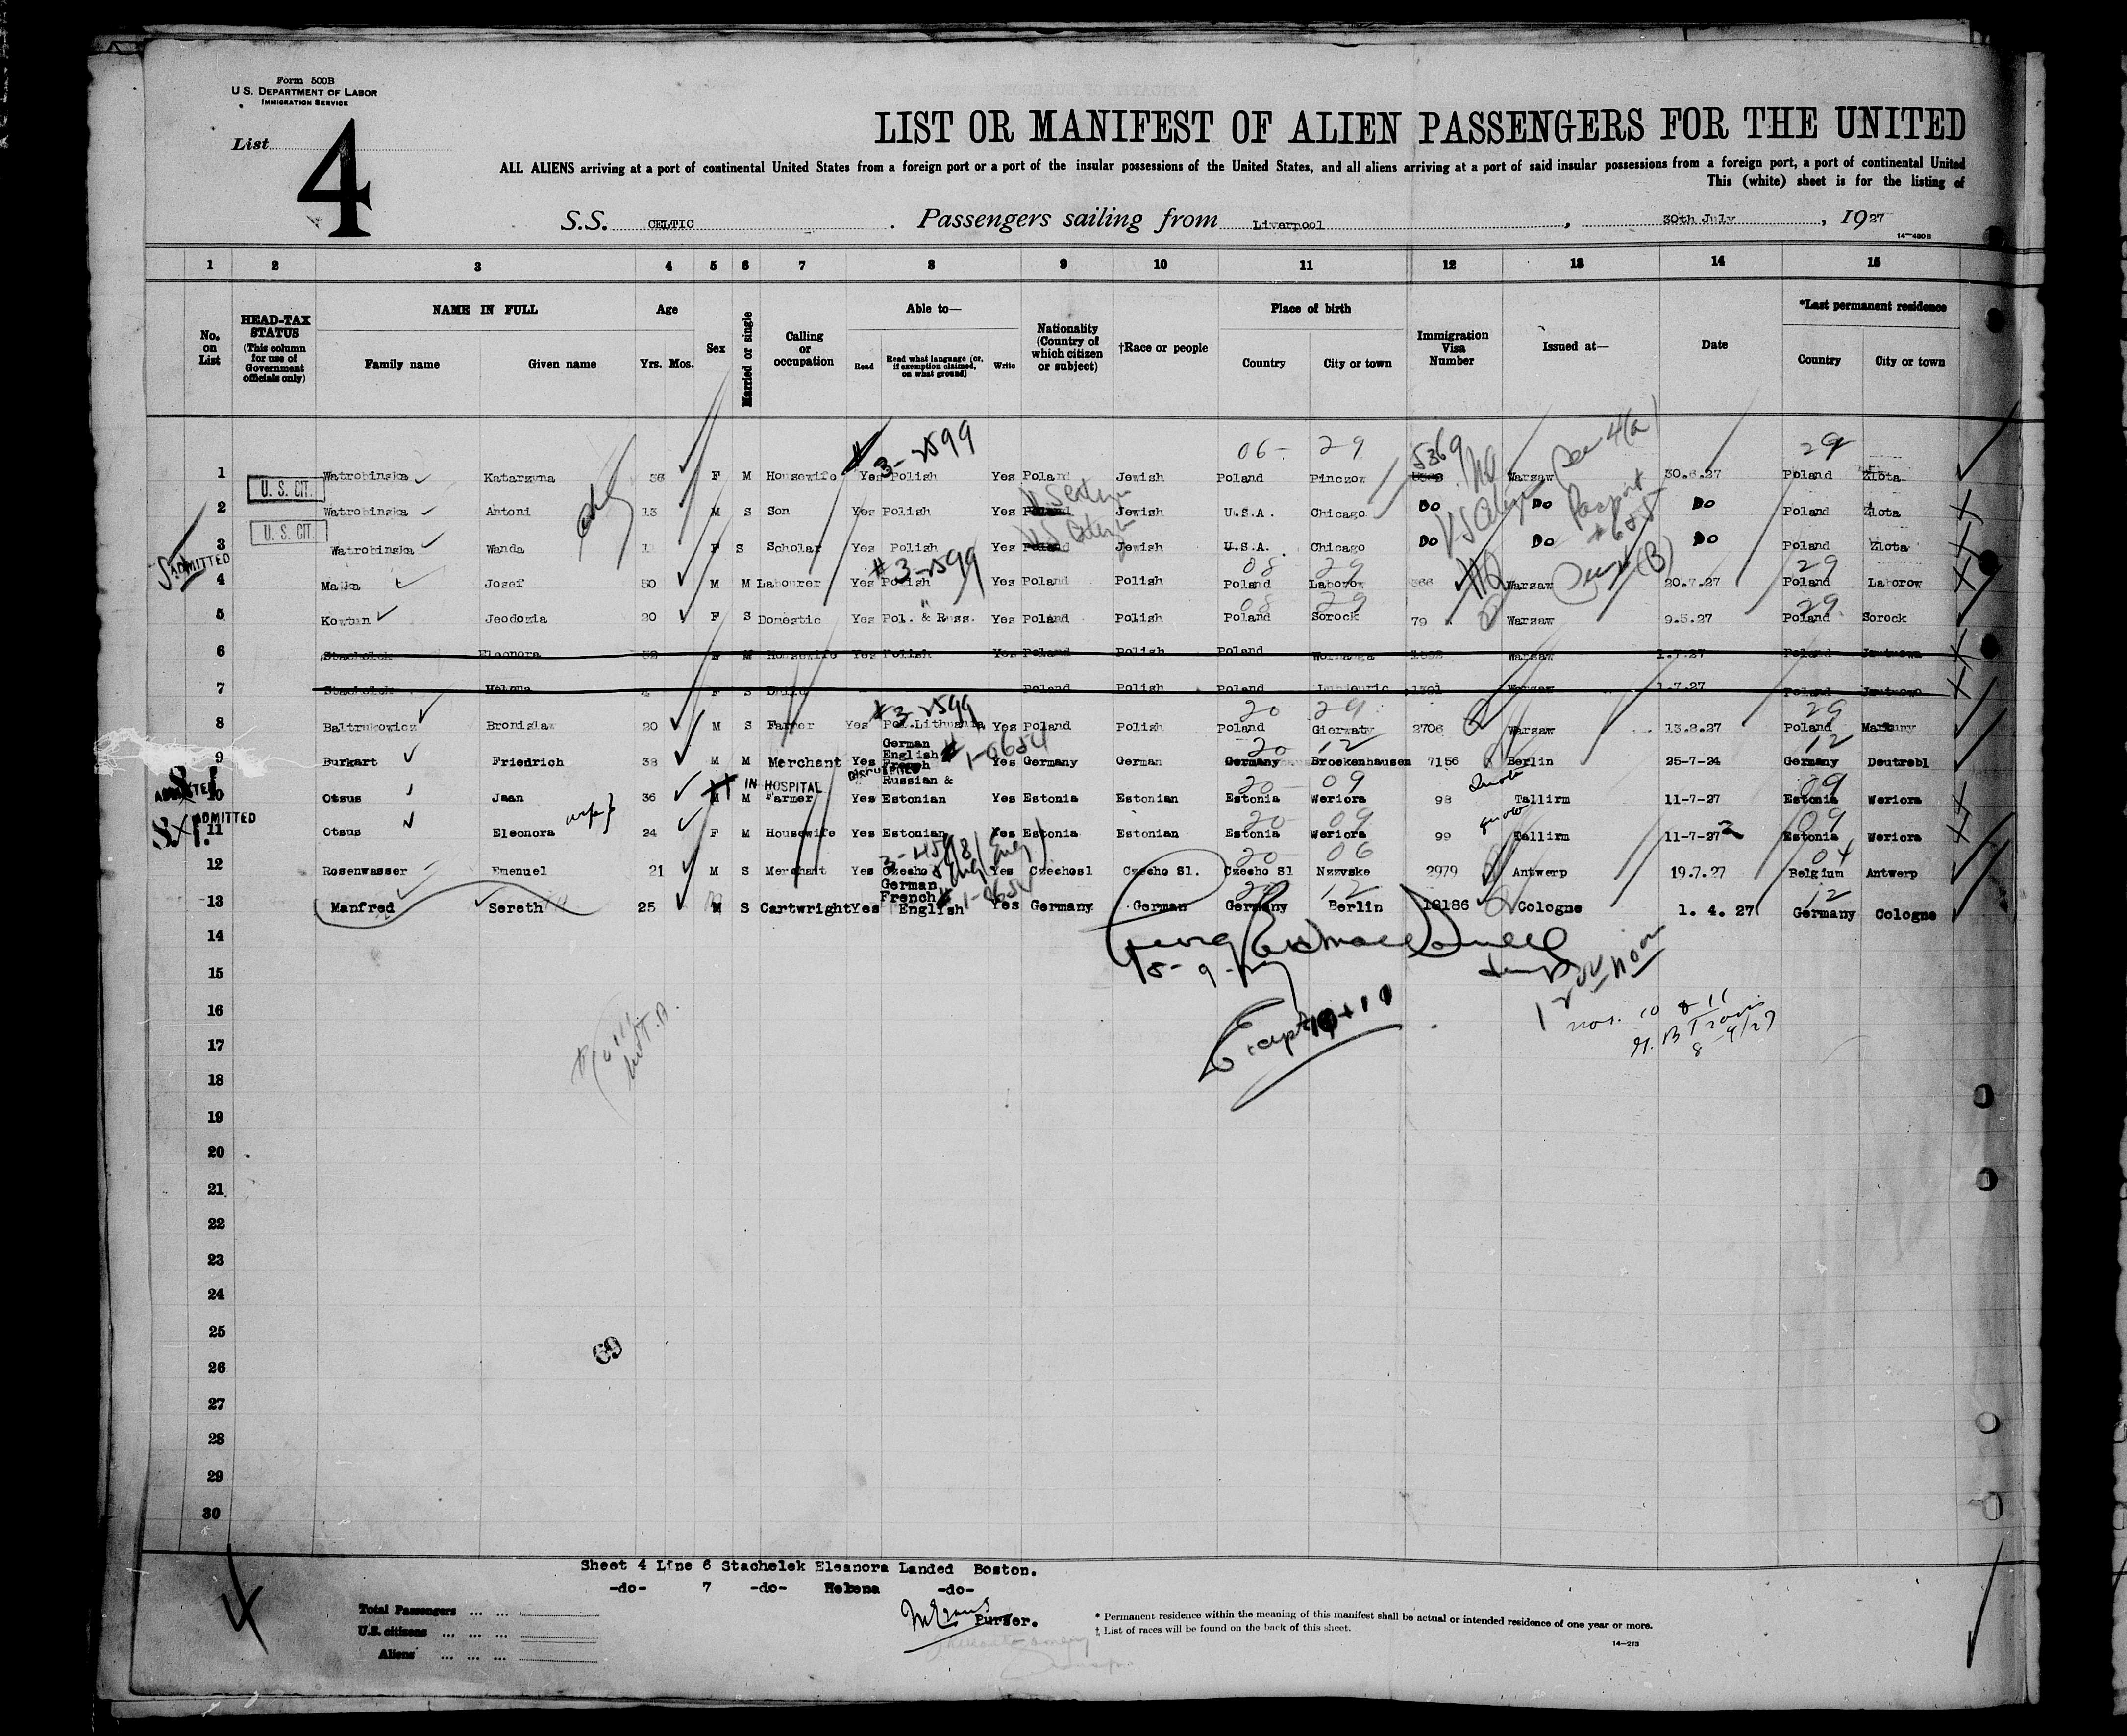 Form 500B
U.S. DEPARTMENT OF LABOR
IMMIGRATION SERVICE
List 4
LIST OR MANIFEST OF ALIEN PASSENGERS FOR THE UNITED
ALL ALIENS arriving at a port of continental United States from a foreign port or a port of the insular possessions of the United States, and all aliens arriving at a port of said insular possessions from a foreign port, a port of continental United
This (white) sheet is for the listing of
S.S. CELTIC . Passengers sailing from Liverpool , 30th July , 1927
14—480B
1 2 3 4 5 6 7 8 9 10 11 12 13 14 15
No. on List
HEAD-TAX STATUS (This column for use of Government officials only)
NAME IN FULL
Family name Given name
Age
Yrs. Mos.
Sex
Married or single
Calling or occupation
Able to—
Read Read what language (or, if exemption claimed, on what ground) Write
Nationality (Country of which citizen or subject)
†Race or people
Place of birth
Country City or town
Immigration Visa Number
Issued at—
Date
*Last permanent residence
Country City or town
# 3-2599 06- 29 5369 29
1 Watrobinska Katarzyna 36 F M Housewife Yes Polish Yes Poland Jewish Poland Pinczow Warsaw 30.6.27 Poland Zlota
U. S. CIT.
2 Watrobinska Antoni 13 M S Son Yes Polish Yes Poland Jewish U.S.A. Chicago DO DO DO Poland Zlota
U. S. CIT.
3 Watrobinska Wanda F S Scholar Yes Polish Yes Poland Jewish U.S.A. Chicago DO DO DO Poland Zlota
ADMITTED
# 3-2599 08 29 29
4 Malka Josef 50 M M Labourer Yes Polish Yes Poland Polish Poland Laborow 366 Warsaw 20.7.27 Poland Laborow
08 29 29
5 Kowtun Jeodozia 20 F S Domestic Yes Pol. & Russ. Yes Poland Polish Poland Sorock 79 Warsaw 9.5.27 Poland Sorock
6 Stachelek Eleonora F M Housewife Yes Polish Yes Poland Polish Poland Warsaw 1.7.27 Poland
7 Stachelek Helena F S Child Poland Polish Poland Warsaw 1.7.27 Poland
# 3-2599 20 29 29
8 Baltrukowicz Bronislaw 20 M S Farmer Yes Pol.Lithuania Yes Poland Polish Poland Gierwaty 2706 Warsaw 13.2.27 Poland Markuny
German
English
French # 1-0654 20 12 12
9 Burkart Friedrich 38 M M Merchant Yes Yes Germany German Germany Brockenhausen 7156 Berlin 25-7-24 Germany Deutrebl
ADMITTED
S.I. IN HOSPITAL
DISCHARGED
Russian & 20 09 Quota 09
10 Otsus Jaan 36 M M Farmer Yes Estonian Yes Estonia Estonian Estonia Weriora 98 Tallirm 11-7-27 Estonia Weriora
ADMITTED
S.I. wife 20 09 quota 09
11 Otsus Eleonora 24 F M Housewife Yes Estonian Yes Estonia Estonian Estonia Weriora 99 Tallirm 11-7-27 Estonia Weriora
20 06 04
12 Rosenwasser Emenuel 21 M S Merchant Yes Czecho Yes Czechosl Czecho Sl. Czecho Sl Nzzvske 2979 Antwerp 19.7.27 Belgium Antwerp
German
French 12 12
13 Manfred Sereth 25 M S Cartwright Yes English Yes Germany German Germany Berlin 12186 Cologne 1. 4. 27 Germany Cologne
14
15
16
nos. 10 & 11
17
18
19
20
21
22
23
24
25
69
26
27
28
29
30
Sheet 4 Line 6 Stachelek Eleanora Landed Boston.
-do- 7 -do- Helena -do-
Purser.
4
Total Passengers ... ...
U.S. citizens ... ... ...
Aliens ... ... ...
* Permanent residence within the meaning of this manifest shall be actual or intended residence of one year or more.
† List of races will be found on the back of this sheet.
14—213